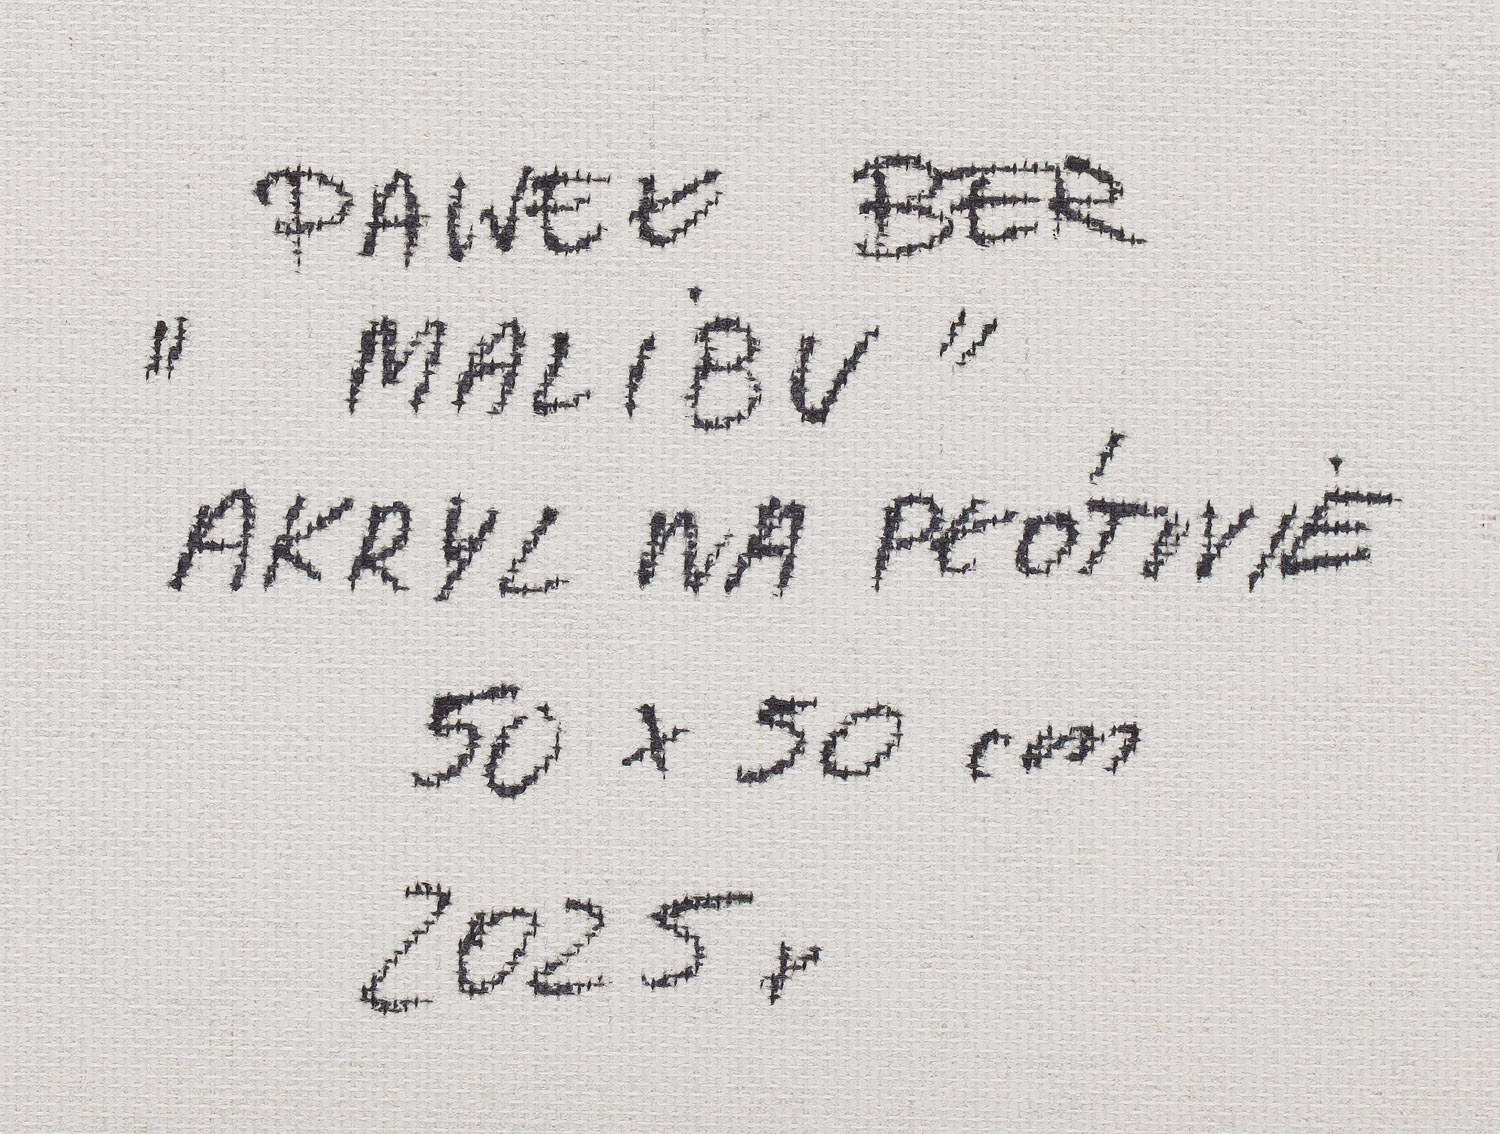 PAWEŁ BER
" MALIBU "
AKRYL NA PŁÓTNIE
50 x 50 cm
2025 r